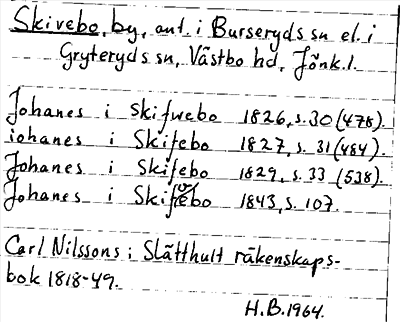 Skivebo, by, ant. i Burseryds sn el. i
Gryteryds sn, Västbo hd, Jönk.l.
Johanes i Skifwebo 1826, s. 30 (478).
iohanes i Skifebo 1827, s. 31 (484).
Johanes i Skifebo 1829, s. 33 (538).
Johanes i Skifebo 1843, s. 107.
Carl Nilssons i Slätthult räkenskaps-
bok 1818-49.
H.B. 1964.